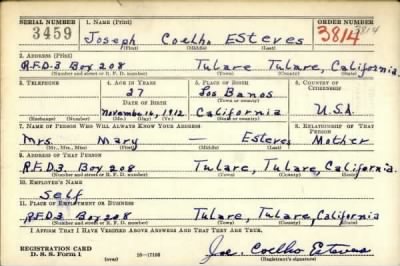 SERIAL NUMBER 1. NAME (Print) ORDER NUMBER
3459 Joseph Coelho Esteves 3814 3814
(First) (Middle) (Last)
2. ADDRESS (Print)
R.F.D.3 Box 208 Tulare Tulare, California.
(Number and street or R. F. D. number) (Town) (County) (State)
3. TELEPHONE 4. AGE IN YEARS 5. PLACE OF BIRTH 6. COUNTRY OF CITIZENSHIP
27 Los Banos
DATE OF BIRTH (Town or county)
November 16, 1912 California U.S.A.
(Exchange) (Number) (Mo.) (Day) (Yr.) (State or country)
7. NAME OF PERSON WHO WILL ALWAYS KNOW YOUR ADDRESS 8. RELATIONSHIP OF THAT PERSON
Mrs. Mary — Esteves Mother
(Mr., Mrs., Miss) (First) (Middle) (Last)
9. ADDRESS OF THAT PERSON
R.F.D.3 Box 208 Tulare, Tulare, California.
(Number and street or R. F. D. number) (Town) (County) (State)
10. EMPLOYER'S NAME
Self
11. PLACE OF EMPLOYMENT OR BUSINESS
R.F.D.3 Box 208 Tulare, Tulare, California
(Number and street or R. F. D. number) (Town) (County) (State)
I AFFIRM THAT I HAVE VERIFIED ABOVE ANSWERS AND THAT THEY ARE TRUE.
REGISTRATION CARD
D. S. S. FORM 1 (over) 16—17105 Joe. Coelho Esteves
(Registrant's signature)